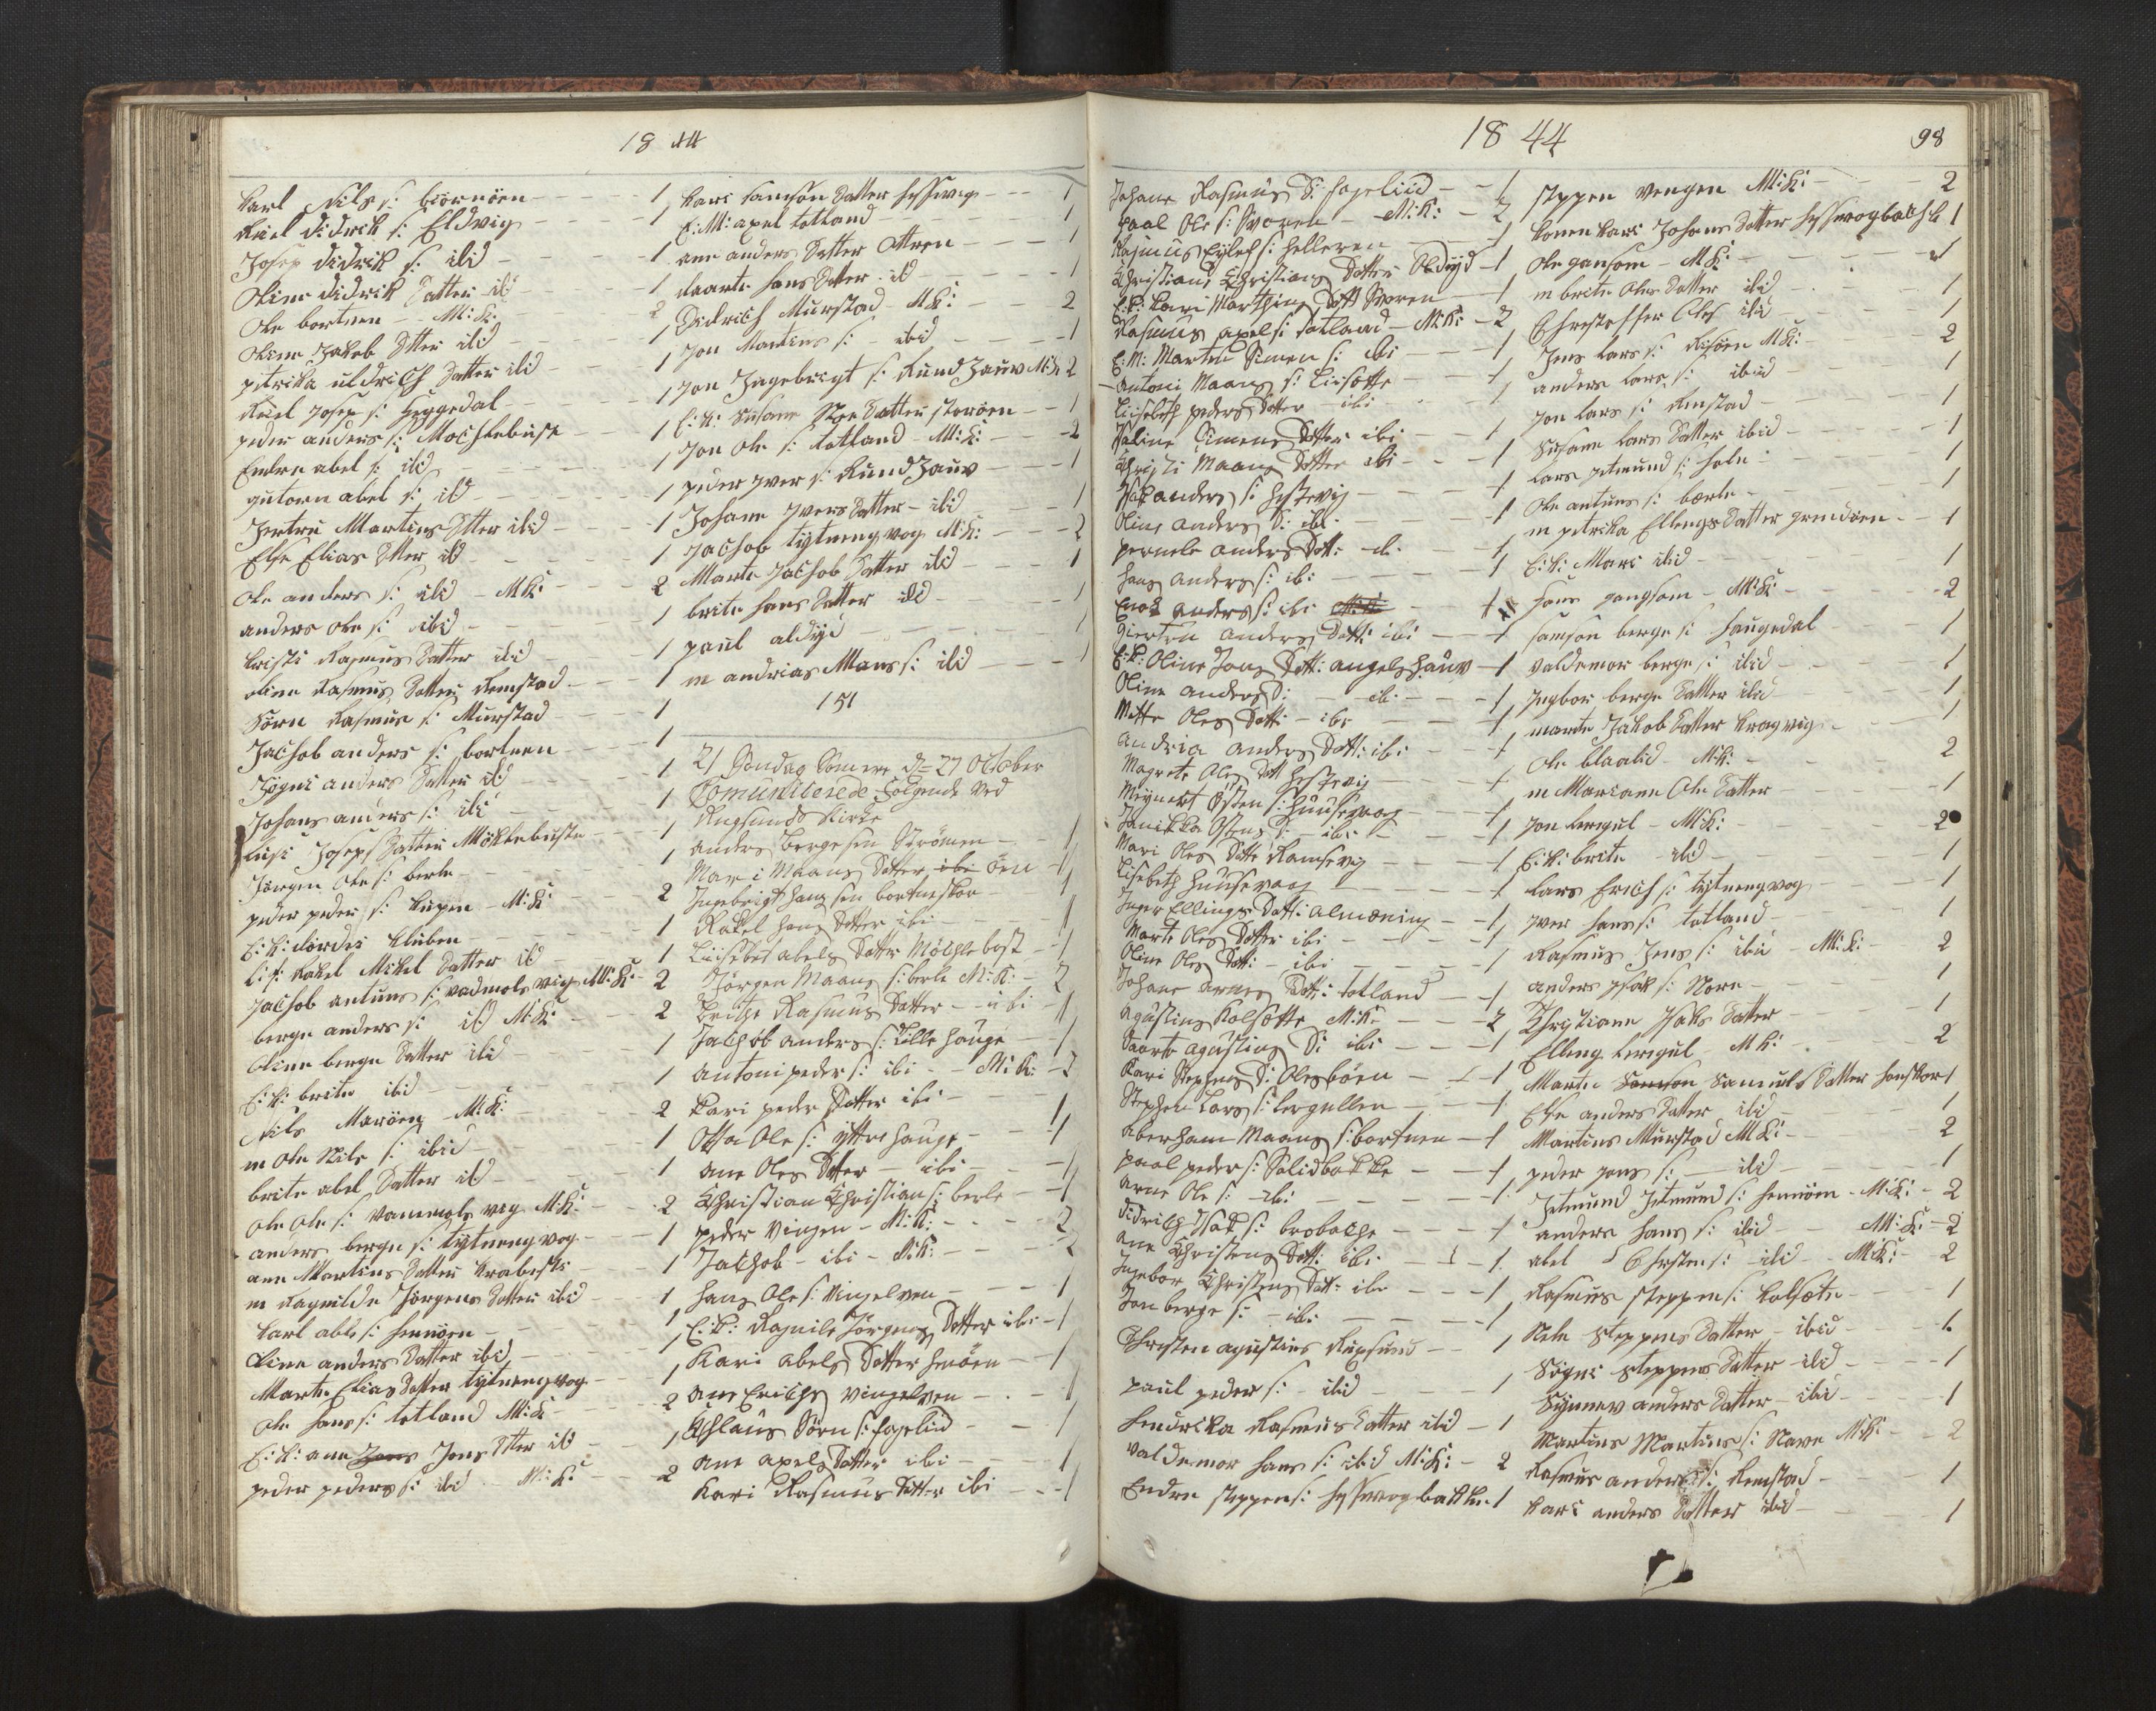 18 44
Karl Nils s: biörnöen - 1
Rael didrik s: Eldvig - 1
Josep didrik s: ibid - 1
Oline didrik Datter ibid - 1
Ole bortnen - M:K: 2
Oline Jakob Dtter ibid - 1
pitrika uldrich Datter ibid - 1
Rael Josep s: Heggedal - 1
peder anders s: Mochlebust - 1
Endre abel s: ibid - 1
gutorn abel s: ibid - 1
Jertru Martins Dtter ibid - 1
Else Elias Dtter ibid - 1
Ole anders s: ibid - M:K: 2
anders ole s: ibid - 1
Kristi Rasmus Datter ibid - 1
oline Rasmus Datter Remstad - 1
Sörn Rasmus s: Murstad - 1
Jachob anders s: bortnen - 1
Sögni anders Datter ibid - 1
Johans anders s: ibid - 1
Joseps Datter Möklebuste - 1
Jörgen Ole s: berle - 1
peder peder s: M:K: 2
E:K: Kluben - 1
E:K: Rakel Mikel Datter ibid - 1
Jachob antuns s: vadmols vig M:K: - 2
berge anders s: ibid M:K: 2
Oline berge Datter ibid - 1
E:K: brite ibid - 1
Nils Maröen M:K: 2
m Ole Nils s: ibid - 1
brite abel Datter ibid - 1
Ole Ole s: Vammols vig M:K: - 2
anders berge s: tytnengvog - 1
ane Martins Datter - 1
m Ragnilde Jörgens Datter ibid - 1
Karl able s: hennöen - 1
Oline anders Datter ibid - 1
Marte Elias Datter tytnengvog - 1
Ole hans s: totland M:K: 2
E:K: ane Jens Dtter ibid - 1
peder peders s: ibid M:K: - 2
Kari Samson Datter - 1
E:M: apel totland - 1
ane anders Datter Attren - 1
Maarte hans Datter ibid - 1
Didrich Murstad M:K: - 2
Jon Martens s: - ibid - 1
Jon Ingebrigt s: M:K: 2
E:K: Susane Datter storöen - 1
Jon Ole s: totland - M:K: - 2
peder Iver s: - 1
Johane Ivers Datter - ibid - 1
Jachob tytnengvog M:K: - 2
Marte Jachob Datter ibid - 1
brite hans Datter ibid - 1
paul aldyd - 1
m andrias Mans s: ibid - 1
151
21 Söndag d= 27 October
Comunicerede Følgende ved
Rugsunds Kirke
anders Bergesen Strömen - 1
Mari Maans Datter öen - 1
Ingebrigt Hansen bortneskor - 1
Rakel Hans Datter ibi - 1
Liisebet abels Datter Möchlebost - 1
Jörgen Maans s: berle M:K: - 2
Brithe Rasmus Datter - ibi - 1
Jachob anders s: Lille hauge - 1
antoni peder s: ibi - M:K: 2
Kari peder Datter ibi - 1
Otta Ole s: yttre hauge - 1
ane Oles Dtter - ibi - 1
Christian Christian s: berle - 1
peder Vingen - M:K: - 2
Jachob - ibi - M:K: - 2
Hans Ole s: Vingelven - 1
E:K: Ragnile Jörgens Datter ibi - 1
Kari abels Datter henöen - 1
ane Erichs Vingelven - 1
Chlaus Sörn s: fageliid - 1
ane apels Datter ibi - 1
Kari Rasmus Datter ibi - 1
18 44
98
Johane Rasmus D: fageliid - 1
paal Ole s: Svoren - M:K: - 2
Rasmus Eylef s: Helleren - 1
Christiane Christians Datter Oldiyd - 1
E:K: Kari Marthins Datt Svoren - 1
Rasmus apel s: totland - M:K: - 2
E:M: Marten Simen s: ibi - 1
antoni Maans s: - 1
Liisebeth peders Datter ibi - 1
Valine Simens Datter ibi - 1
Christi Maans Datter ibi - 1
Isak anders s: Hestevig - 1
Oline anders D: ibi - 1
pernele anders Datt: ib - 1
Hans anders s: ibi - 1
Enok anders s: ibi - 1
Giertru anders Datt: ibi - 1
E:K: Oline Jons Datt: angelshauv - 1
Oline anders D: - ibi - 1
Mette Oles Datt: - ibi - 1
andria anders Datt: ibi - 1
Magrete Oles Datt Hestevig - 1
Meynert Östen s: Huusevaag - 1
Janikka Östens D: - ibi - 1
Mari Oles Datt: Ramsevig - 1
Lisebeth Huusevaag - 1
Inger Ellings Datt: almening - 1
Marte Oles Datter ibi - 1
Oline Oles Datt: - ibi - 1
Johane arnes Datt: totland - 1
agustins Kolsötte M:K: - 2
Maarte agustins D: ibi - 1
Kari Stephens D: Olesböen - 1
Stephen Lars s: Lergullen - 1
aberham Maans s: bortnen - 1
paal peder s: Solidbakke - 1
arne Ole s: ibi - 1
Didrich Isak s: brobakke - 1
ane Christens Datt: ibi - 1
Ingebor Christens Datt: ibi - 1
Jon berge s: ibi - 1
Chresten agustins Rugsund - 1
paul peder s: - ibid - 1
hendrika Rasmus Datter ibid - 1
valdemor hans s: ibid M:K: - 2
Endre steppen s: - 1
steppen vengen M:K: - 2
Konen Kari Johans Datter - 1
Ole gansom - M:K: -
m brite Oles Datter ibid - 1
Chrestoffer Oles ibid - 1
Jens Lars s: Risöen M:K: - 2
anders Lars s: ibid - 1
Jon Lars s: Remstad - 1
Susane Lars Datter ibid - 1
Lars Jetmund s: hole - 1
Ole antuns s: berle - 1
m pitrika Ellengs Datter grindöen - 1
E:K: Mari ibid - 1
hans gangsom - M:K: - 2
samson berge s: haugedal - 1
valdemor berge s: ibid - 1
Ingbor berge Datter ibid - 1
marte Jakob Datter Kragvig - 1
Ole blaalid - M:K: - 2
m Mariane Ole Datter - 1
Jon Lergul - M:K: - 2
E:K: brite ibid - 1
Lars Erich s: tytnengvog - 1
Iver hans s: totland - 1
Rasmus Jens s: ibid - M:K: - 2
anders Isak s: Nore - 1
Christiane Isaks Datter - 1
Elleng Lergul - M:K: - 2
Marte Samuls Datter 1
Else anders Datter ibid - 1
Martins Murstad M:K: - 2
peder jens s: - ibid - 1
Jetmund Jetmund s: hennöen - M:K: - 2
anders hans s: ibid - M:K: - 2
abel Chresten s: - ibid - M:K: - 2
Rasmus steppen s: Kolsete - 1
Nele steppens Datter - ibid - 1
Sögni steppens Datter - ibid - 1
Synnev anders Datter - ibid - 1
Martins Martins s: Nave M:K: - 2
Rasmus anders s: Remstad - 1
Kari anders Datter ibid - 1